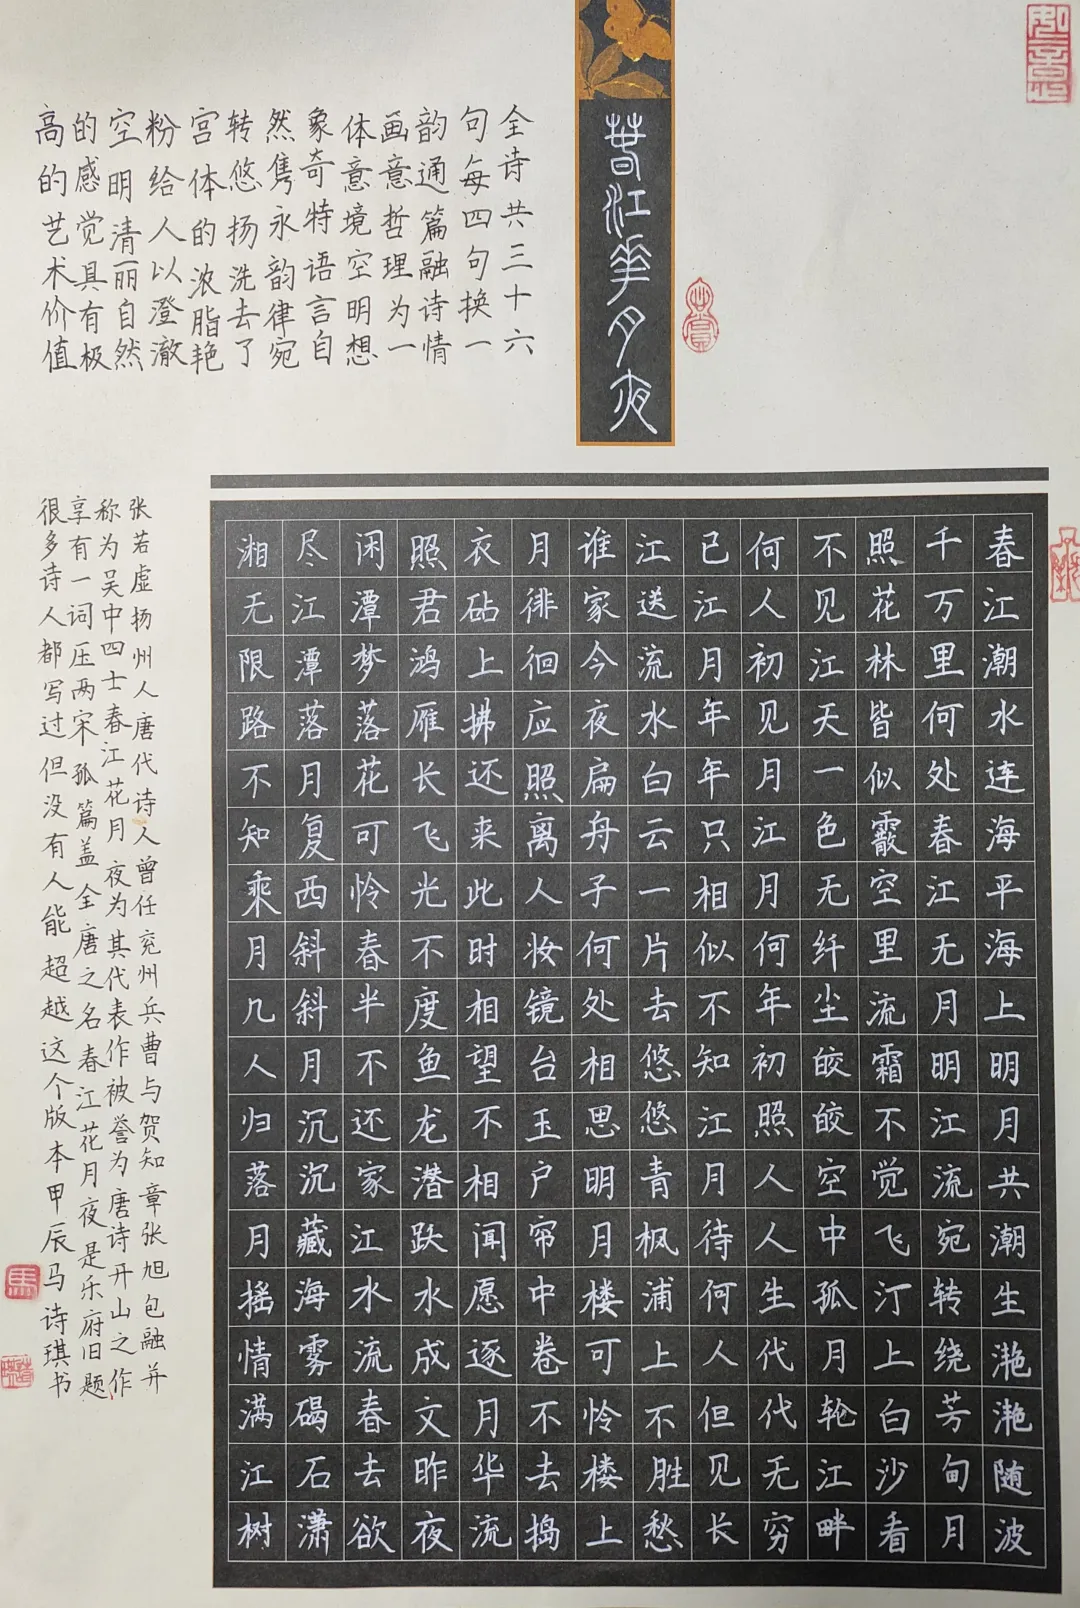 春江華月夜
全诗共三十六
句每四句换一
韵通篇融诗情
画意哲理为一
体意境空明想
象奇特语言自
然隽永韵律宛
转悠扬洗去了
宫体的浓脂艳
粉给人以澄澈
空明清丽自然
的感觉具有极
高的艺术价值
春江潮水连海平海上明月共潮生滟滟随波
千万里何处春江无月明江流宛转绕芳甸月
照花林皆似霰空里流霜不觉飞汀上白沙看
不见江天一色无纤尘皎皎空中孤月轮江畔
何人初见月江月何年初照人人生代代无穷
已江月年年只相似不知江月待何人但见长
江送流水白云一片去悠悠青枫浦上不胜愁
谁家今夜扁舟子何处相思明月楼可怜楼上
月徘徊应照离人妆镜台玉户帘中卷不去捣
衣砧上拂还来此时相望不相闻愿逐月华流
照君鸿雁长飞光不度鱼龙潜跃水成文昨夜
闲潭梦落花可怜春半不还家江水流春去欲
尽江潭落月复西斜斜月沉沉藏海雾碣石潇
湘无限路不知乘月几人归落月摇情满江树
张若虚扬州人唐代诗人曾任兖州兵曹与贺知章张旭包融并
称为吴中四士春江花月夜为其代表作被誉为唐诗开山之作
享有一词压两宋孤篇盖全唐之名春江花月夜是乐府旧题
很多诗人都写过但没有人能超越这个版本甲辰马诗琪书